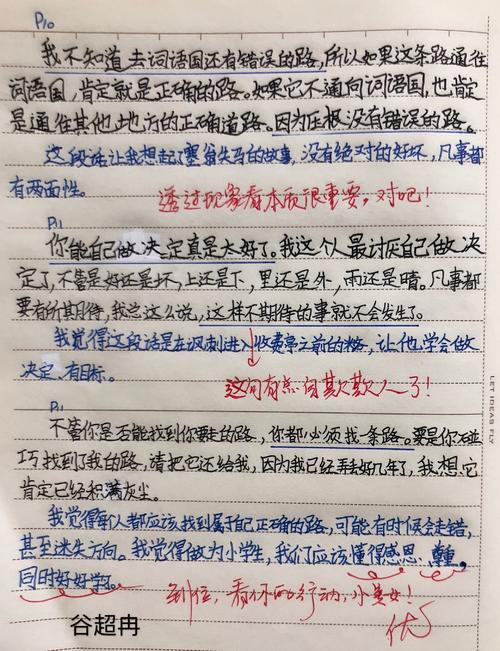 P10
我不知道去词语国还有错误的路，所以如果这条路通往
词语国，肯定就是正确的路。如果它不通向词语国，也肯定
是通往其他地方的正确道路。因为压根没有错误的路。
这段话让我想起了塞翁失马的故事，没有绝对的好坏，凡事都
有两面性。
透过现象看本质很重要，对吧！
P11
你能自己做决定真是太好了。我这个人最讨厌自己做决
定了，不管是好还是坏，上还是下，里还是外，雨还是晴。凡事都
要有所期待，我总这么说，这样不期待的事就不会发生了。
我觉得这段话是在讽刺进入收费亭之前的米洛，让他学会做
决定、有目标。
这句有点自欺欺人了！
LET IDEAS FLY
P11
不管你是否能找到你要走的路，你都必须找一条路。要是你碰
巧找到了我的路，请把它还给我，因为我已经弄丢好几年了，我想，它
肯定已经积满灰尘。
我觉得每人都应该找到属于自己正确的路，可能有时候会走错，
甚至迷失方向。我觉得做为小学生，我们应该懂得感恩、尊重，
同时好好学习。
到位，看你的行动，小美女！
优
谷超冉